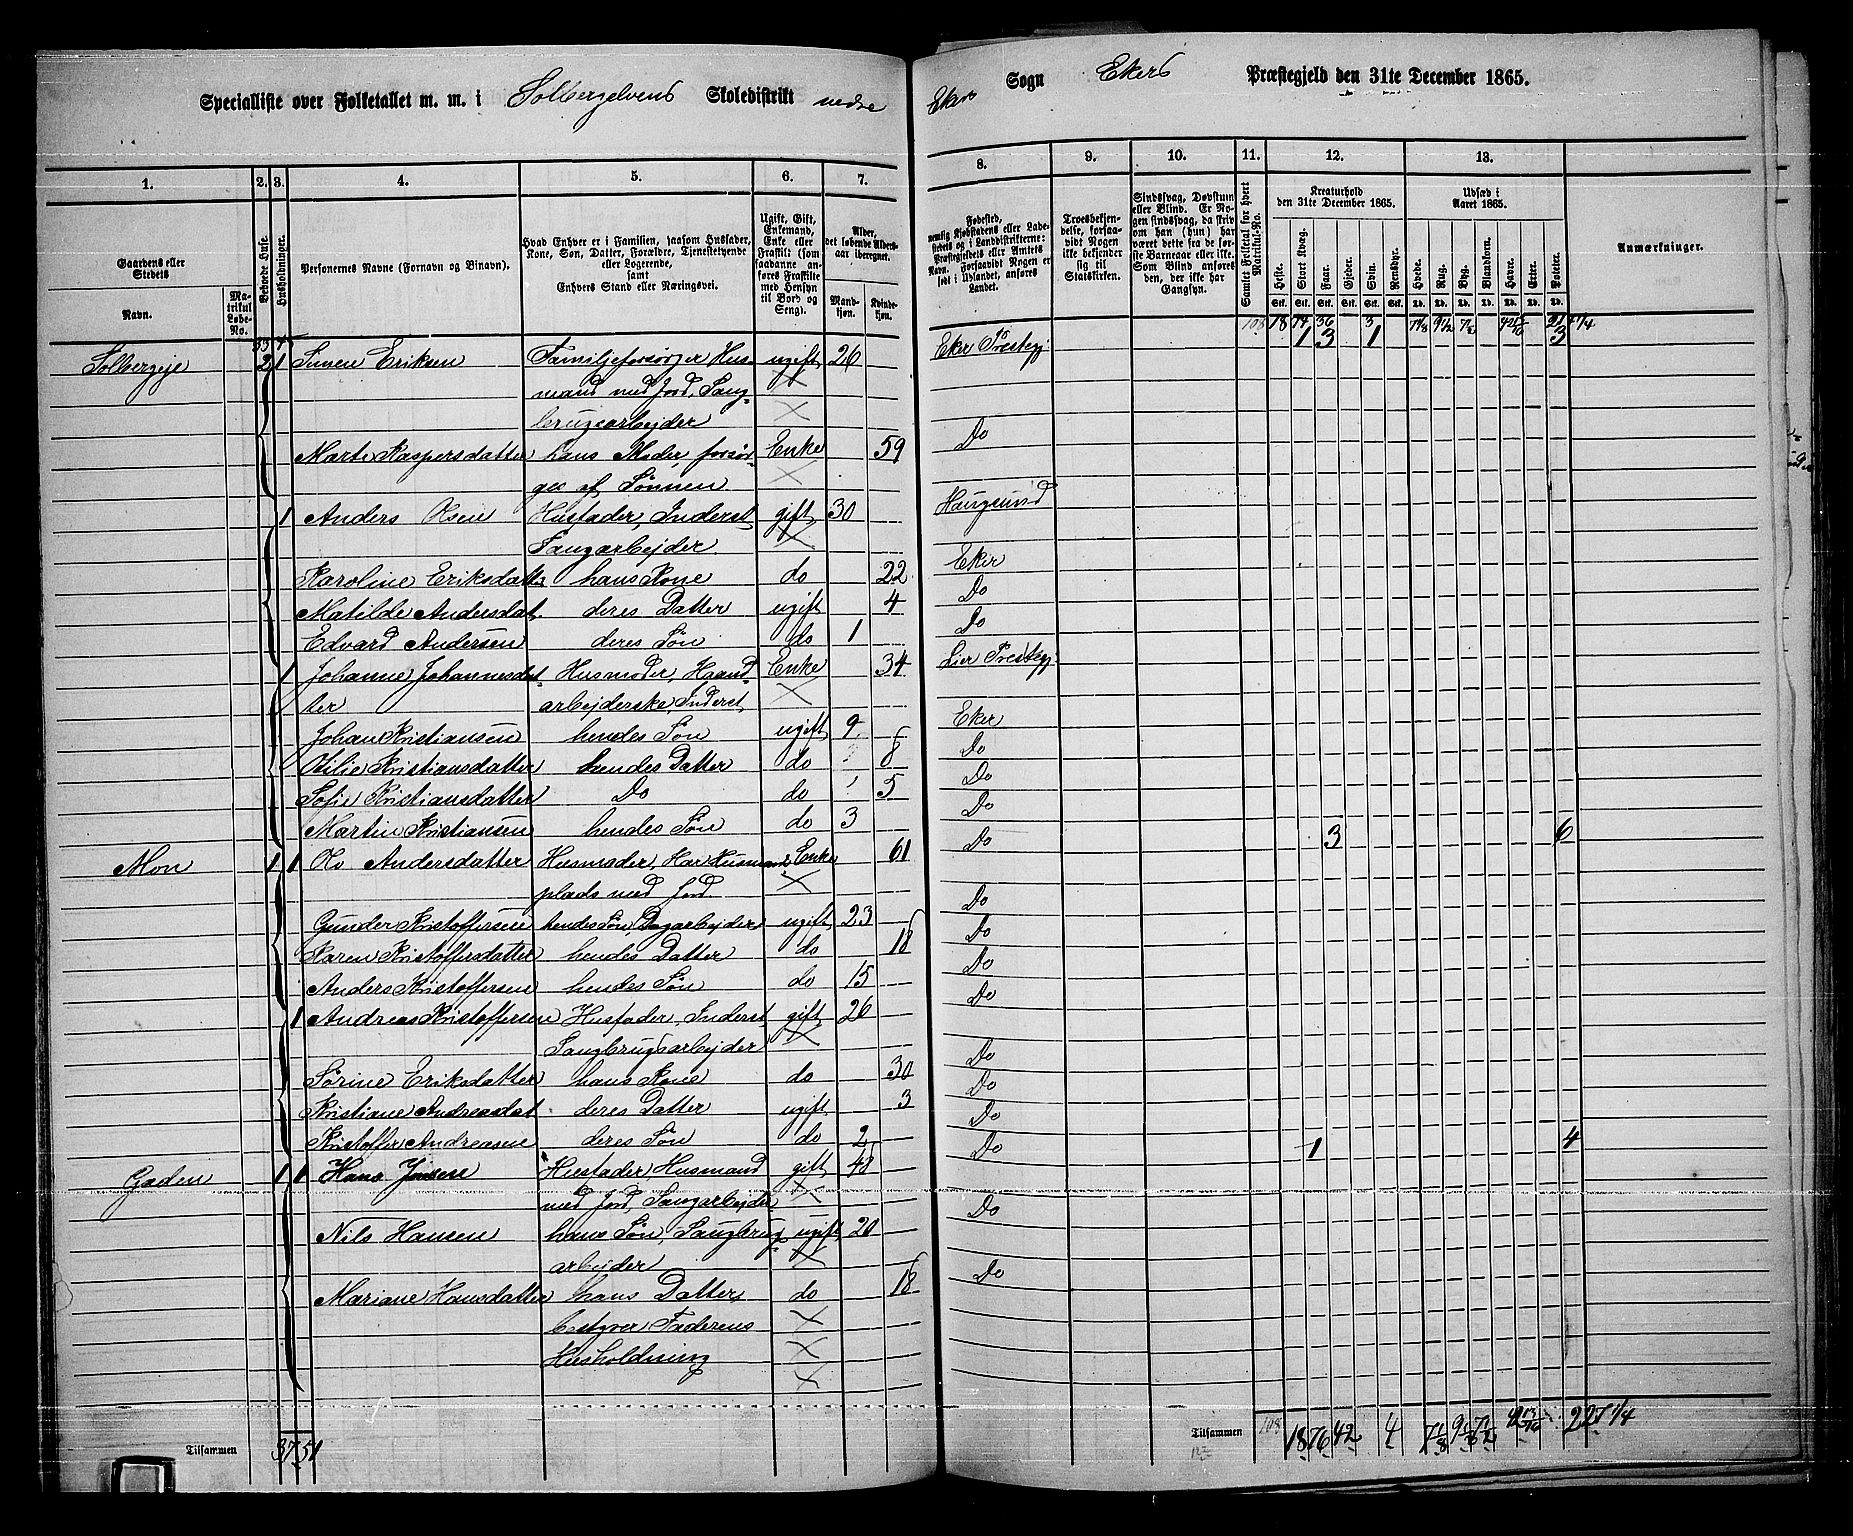 Specialliste over Folketallet m. m. i Solbergelvens Skoledistrikt nedre
Eker Sogn Ekers Præstegjeld den 31te December 1865.
1. 2. 3. 4. 5. 6. 7. 8. 9. 10. 11. 12. 13.
Gaardens eller Stedets
Navn.
Matrikul Løbe-No.
Beboede Huse.
Husholdninger.
Personernes Navne (Fornavn og Binavn).
Hvad Enhver er i Familien, saasom Husfader, Kone, Søn, Datter, Forældre, Tjenestetyende eller Logerende, samt Enhvers Stand eller Næringsvei.
Ugift, Gift, Enkemand, Enke eller Fraskilt (saadanne anføres Fraskilte med Hensyn til Bord og Seng).
Alder, det løbende Alders-aar iberegnet.
Mandkjøn. Kvindekjøn.
Fødested, nemlig Kjøbstadens eller Ladestedets og i Landdistrikterne: Præstegjeldets eller Amtets Navn. Forsaavidt Nogen er født i Udlandet, anføres Landet.
Troesbekjendelse, forsaavidt Nogen ikke bekjender sig til Statskirken.
Sindssvag, Døvstum eller Blind. Er Nogen sindssvag, da skriv om han (hun) har været dette fra de første Barneaar eller ikke. Som Blind ansføres den, der ikke har Gangsyn.
Samlet Folketal for hvert Matrikul-No.
Kreaturhold den 31te December 1865.
Heste. Stort Kvæg. Faar. Gjeder. Svin. Rensdyr.
Udsæd i Aaret 1865.
Hvede. Rug. Byg. Blandkorn. Havre. Erter. Poteter.
Anmærkninger.
Solbergeje 2 1 Simen Eriksen Familjeforsørger Hus- ugift 26 Eker Prestegj: 1 3 1 3
mand med Jord, Saug-
brugsarbejder
Marte Kaspersdatter hans Moder, forsør- Enke 59 Do
ges af Sønnen
1 Anders Olsen Husfader, Inderst gift 30 Haugsund
Saugarbejder
Karoline Eriksdatt hans Kone do 22 Eker
Matilde Andersdat deres Datter ugift 4 Do
Edvard Andersen deres Søn do 1 Do
1 Johanne Johannesdat- Husmoder, Haand- Enke 34 Lier Prestegj
ter arbejderske, Inderst
Johan Kristiansen hendes Søn ugift 9 Eker
Otilie Kristiansdatter hendes Datter do 8 Do
Sofie Kristiansdatter Do do 5 Do
Martin Kristiansen hendes Søn do 3 Do
Mon 1 1 Andersdatter Husmoder, Har Husmands Enke 61 Do 3 6
plads med Jord
Gunder Kristoffersen hendes Søn, Dagarbejder ugift 23 Do
Karen Kristoffersdatter hendes Datter do 18 Do
Anders Kristoffersen hendes Søn do 15 Do
1 Andreas Kristoffersen Husfader, Inderst gift 26 Do
Saugbrugsarbejder
Sørine Eriksdatter hans Kone do 30 Do
Kristiane Andreasdat deres Datter ugift 3 Do
Kristoffer Andreasen deres Søn do 2 Do
Gaden 1 1 Hans Jensen Husfader, Husmand gift 48 Do 1 4
med Jord, Saugarbejder
Nils Hansen hans Søn, Saugbrugs ugift 20 Do
arbejder
Mariane Hansdatter hans Datter, do 18 Do
bestyrer Faderens
Husholdning
Tilsammen 37 51
Tilsammen 108 18 76 42 4 7 1/8 9 1/2 7 1/2 42 13/16 227 1/4